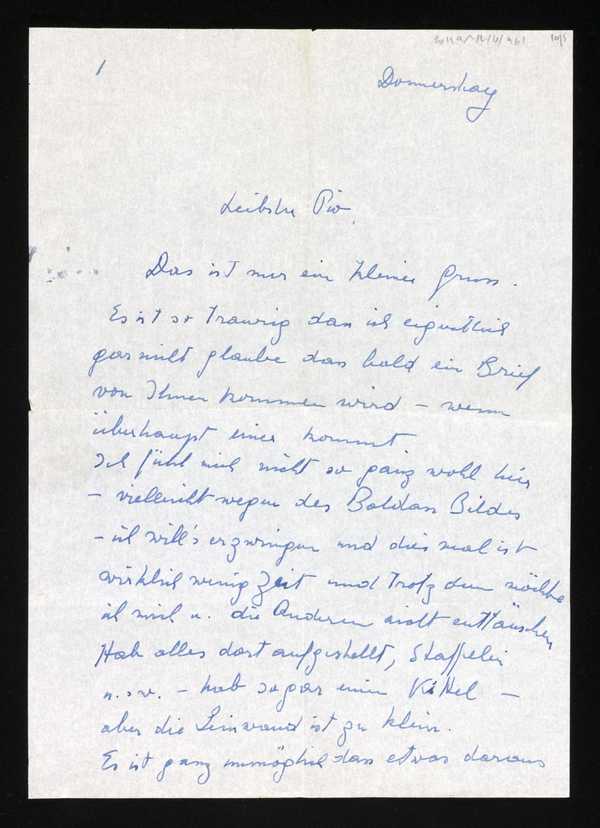 1
Donnerstag
Leibste Pio
Das ist nur ein kleiner Gruss.
Es ist so traurig dass ich eigentlich
garnicht glaube dass bald ein Brief
von Ihnen kommen wird – wenn
überhaupt einer kommt
Ich fühl mich nicht so ganz wohl hier
– vielleicht wegen des Bildes
– ich will's erzwingen und dies mal ist
wirklich wenig Zeit und trotz dem möchte
ich mich u. die Anderen nicht enttäuschen
Hab alles dort aufgestellt, Staffelei
u.s.w. – hab sogar einen Kittel –
aber die Leinwand ist zu klein.
Es ist ganz unmöglich dass etwas daraus